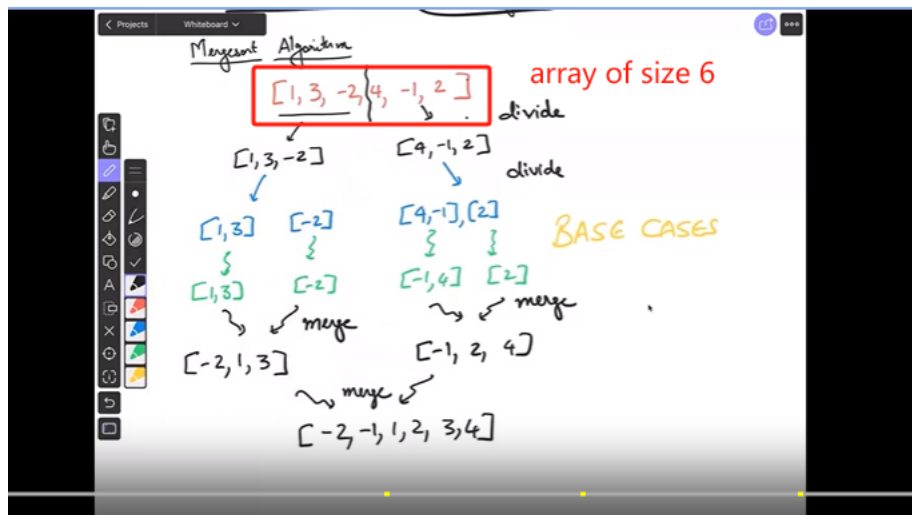 Projects
Whiteboard
Mergesort Algorithm
[1, 3, -2, 4, -1, 2]
array of size 6
divide
[1, 3, -2]
[4, -1, 2]
divide
[1, 3]
[-2]
[4, -1], [2]
BASE CASES
[1, 3]
[-2]
[-1, 4]
[2]
merge
merge
[-2, 1, 3]
[-1, 2, 4]
merge
[-2, -1, 1, 2, 3, 4]